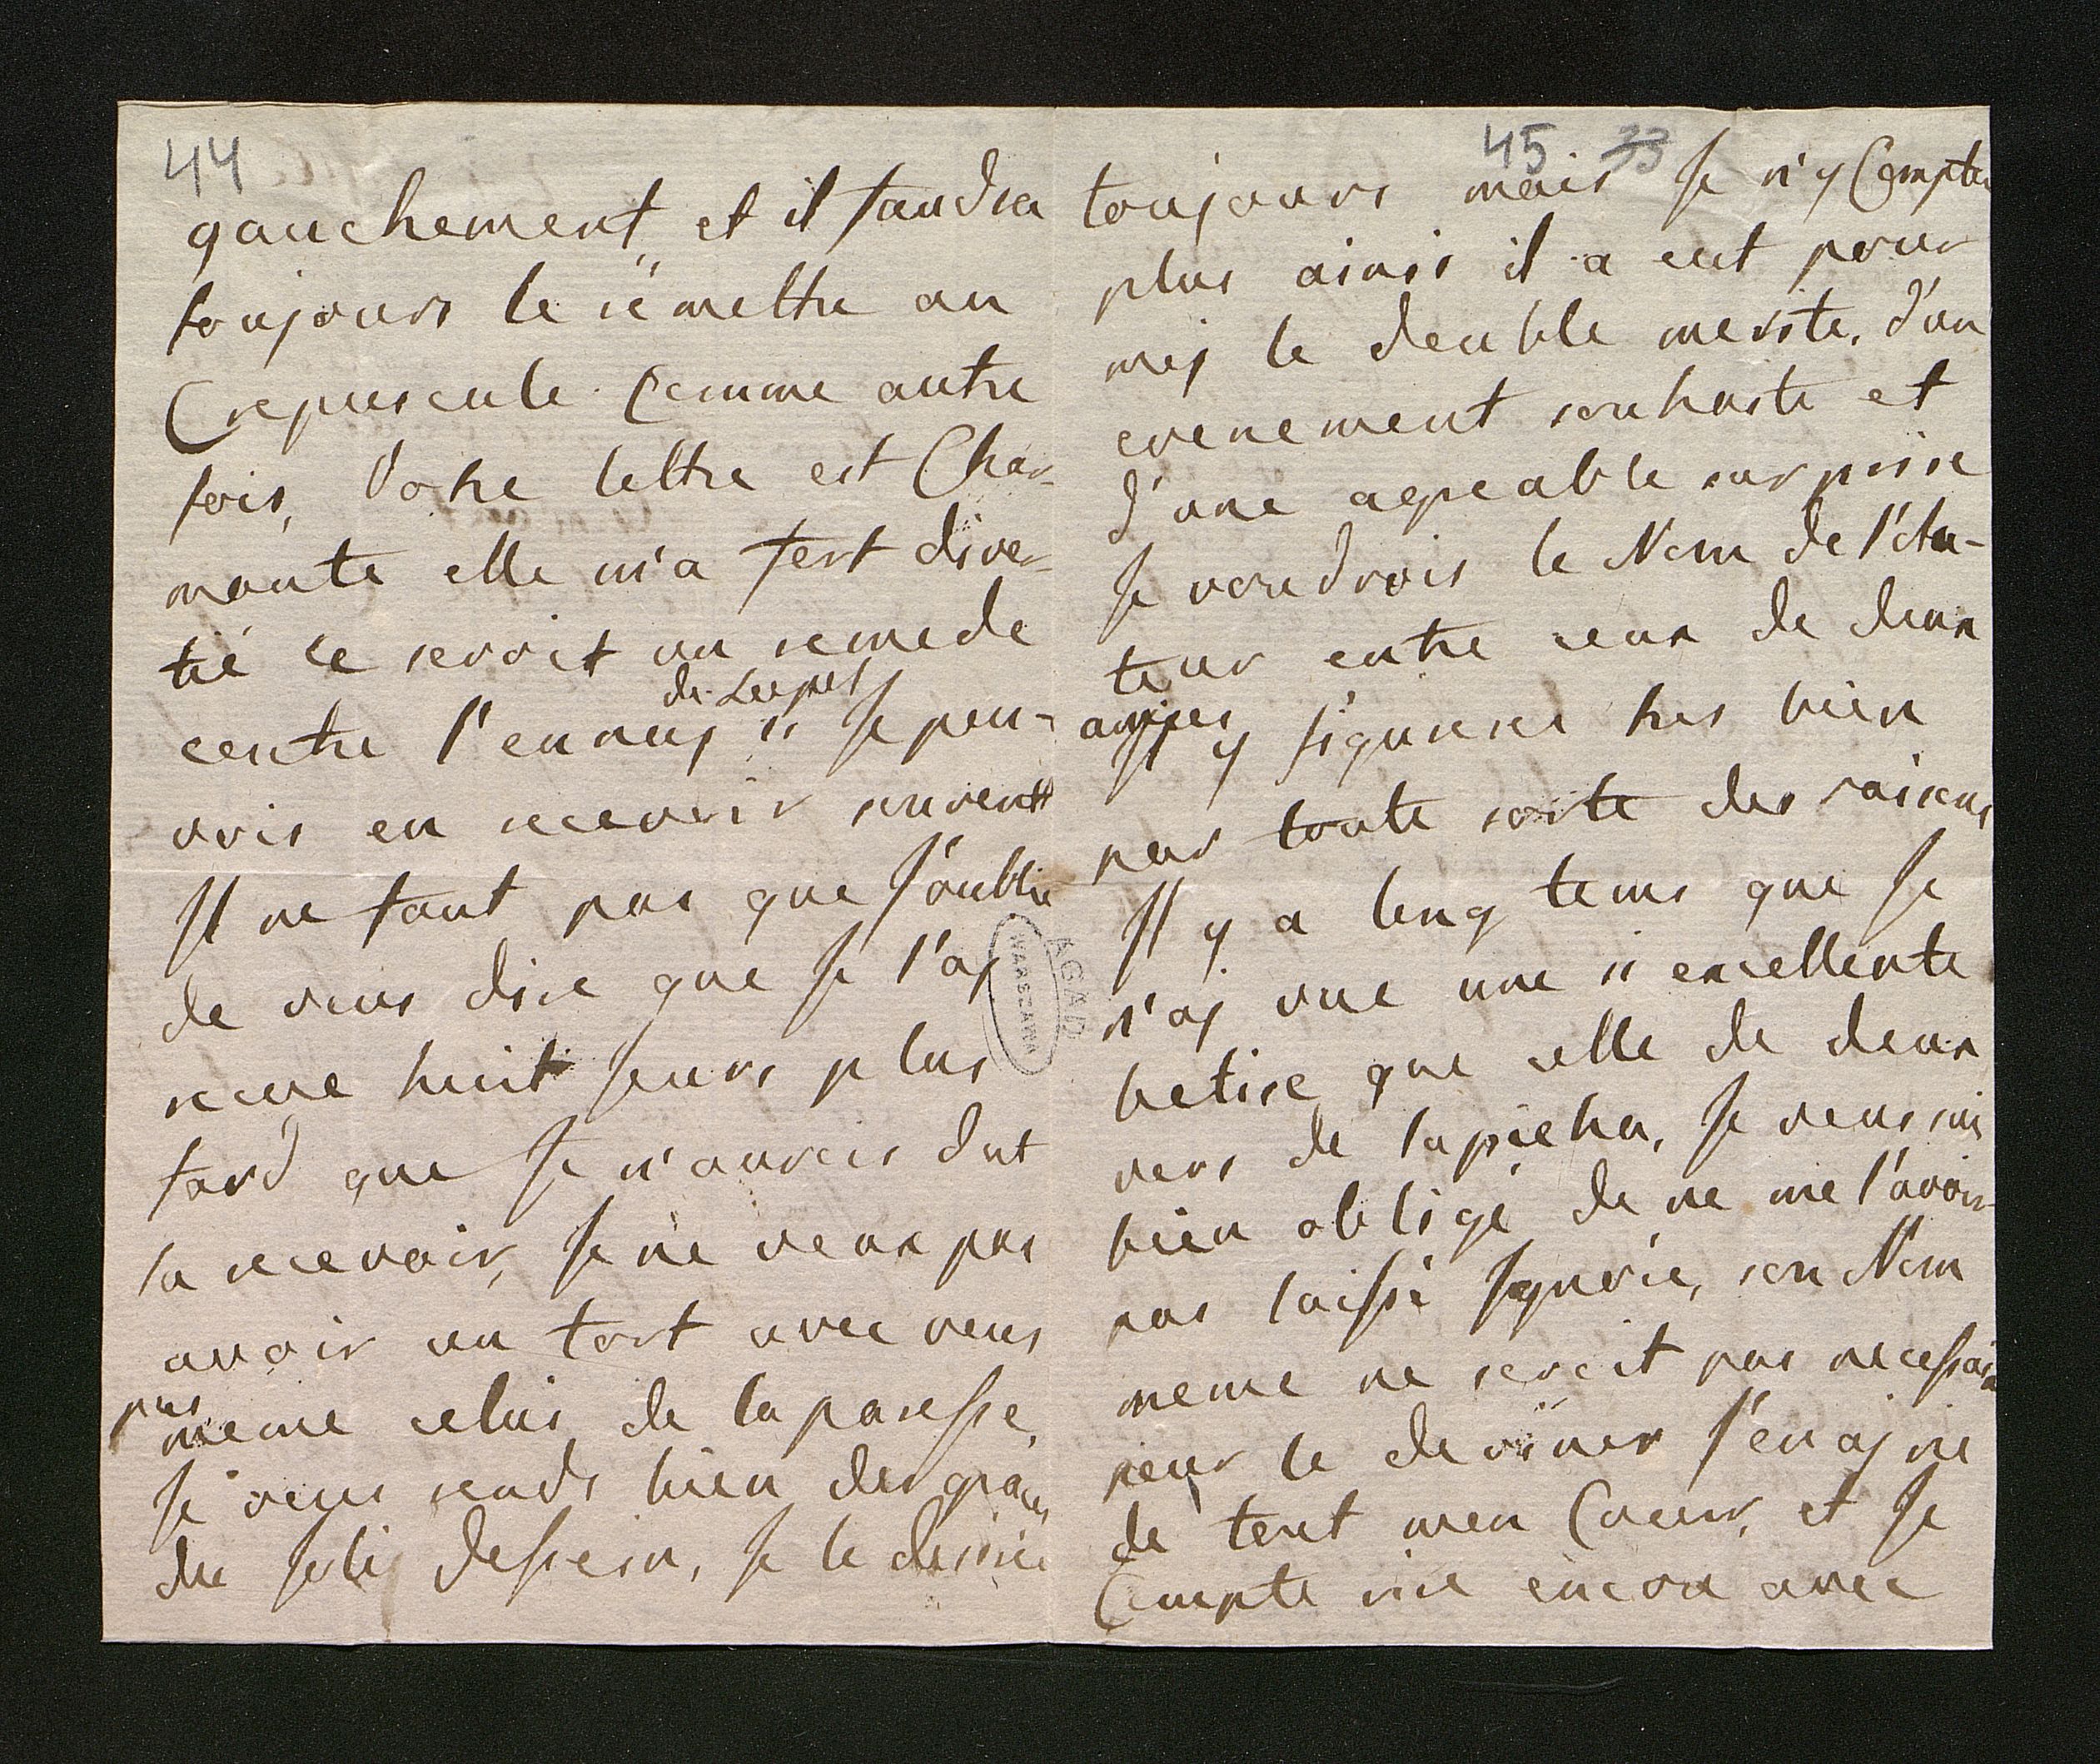 44
gauchement et il faudra
toujours le remettre au
Crepuscule Comme autre
fois, Votre lettre est Char-
mante elle m'a fort diver-
tié ce seroit un remede
contre l'ennuy de Leopol si Je pou-
vois en recevoir souvent
Il ne faut pas que J'oublie
de vous dire que Je l'ay
recue huit Jours plus
tard que Je n'aurois dut
la recevoir, Je ne veux pas
avoir un tort avec vous
pas meme celui de la paresse,
Je vous rends bien des graces
du Joli dessein, Je le desirie
45 33
toujours mais Je n'y Comptes
plus ainsi il a eut pour
moy le double merite, d'un
evenement souhaite et
d'une agreable surprise
Je voudrois le Nom de l'Au-
teur entre ceux de deux
anges
Il y figurera tres bien
par toute sorte des raisons
Il y a long tems que Je
n'ay vue une si excellente
betise que celle de deux
vers de Sapieha, Je vous suis
bien obligé de ne me l'avoir
pas laissé Ignorée, son Nom
meme ne seroit pas necessaire
pour le deviner J'en ay rie
de tout mon Coeur, et Je
Compte rire encore avec
A.G.A.D.
WARSZAWA